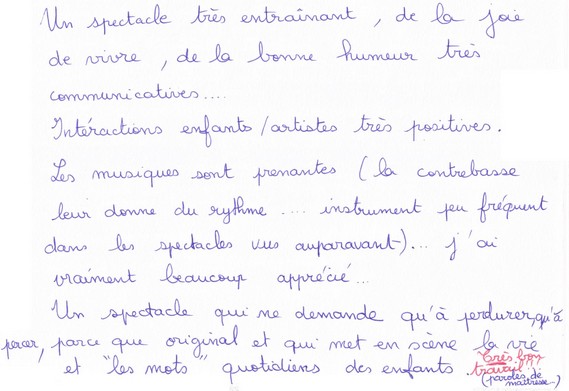 Un spectacle très entraînant, de la joie
de vivre, de la bonne humeur très
communicatives....
Intéractions enfants/artistes très positives.
Les musiques sont prenantes (la contrebasse
leur donne du rythme .... instrument peu fréquent
dans les spectacles vus auparavant)... j'ai
vraiment beaucoup apprécié...
Un spectacle qui ne demande qu'à perdurer, qu'à
percer, parce que original et qui met en scène la vie
et "les mots" quotidiens des enfants.
(très bon
travail!
paroles de
maîtresse.)